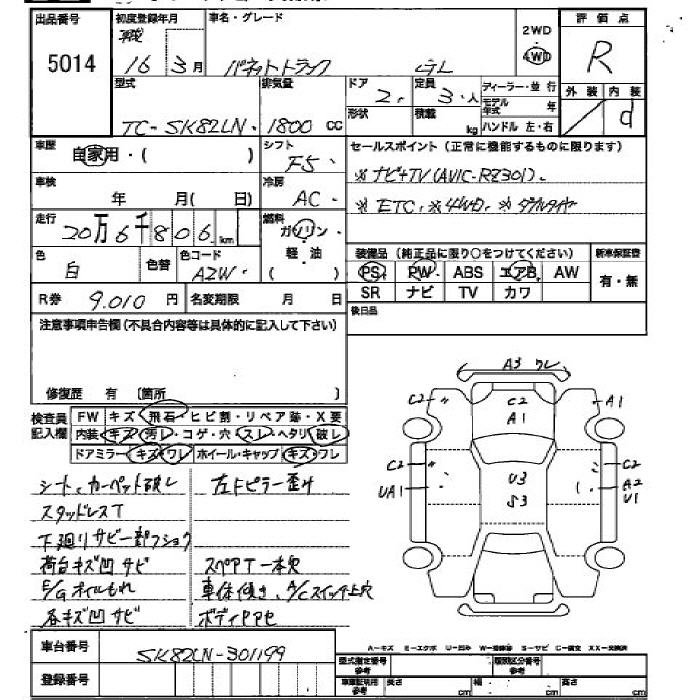 出品番号 初度登録年月 車名・グレード 2WD 評価点
5014 16 3月 バネットトラック GL 4WD R
型式 排気量 ドア 2 定員 3人 ディーラー・並行 外装 内装
TC-SK82LN 1800 cc 形状 積載 kg モデル年式 年 ハンドル 左・右 d
車歴 自家用・( ) シフト F5 セールスポイント(正常に機能するものに限ります)
車検 年 月( 日) 冷房 AC ※ナビ+TV(AVIC-RZ301).
走行 20万6千806km 燃料 ガソリン・軽油 ( ) ※ETC,※4WD,※ダブルタイヤ
色 白 色替 色コード A2W 装備品(純正品に限り○をつけてください) 新車保証書
PS PW ABS エアB AW 有・無
R券 9.010円 名変期限 月 日 SR ナビ TV カワ
注意事項申告欄(不具合内容等は具体的に記入して下さい) 後日品
修復歴 有 〔箇所 〕
検査員記入欄 FW キズ・飛石・ヒビ割・リペア跡・X要
内装 キズ・汚レ・コゲ・穴・スレ・ヘタリ・破レ
ドアミラー キズ・ワレ ホイール・キャップ キズ・ワレ
A3 ワレ
C2 C2 A1
A1
C2 C2
UA1 U3 A2
S3 U1
シート,カーペット破レ 左Fピラー歪み
スタッドレスT
下廻りサビ一部フショク
荷台キズ凹サビ スペアT一本欠
E/Gオイルもれ 車体傾き,A/Cスイッチ上穴
各キズ凹サビ
車台番号 SK82LN-301199
登録番号
A-キズ E-エクボ U-凹み W-補修跡 S-サビ C-腐食 XX-交換済
型式指定番号 類別区分番号
車庫証明用参考 長さ cm 幅 cm 高さ cm